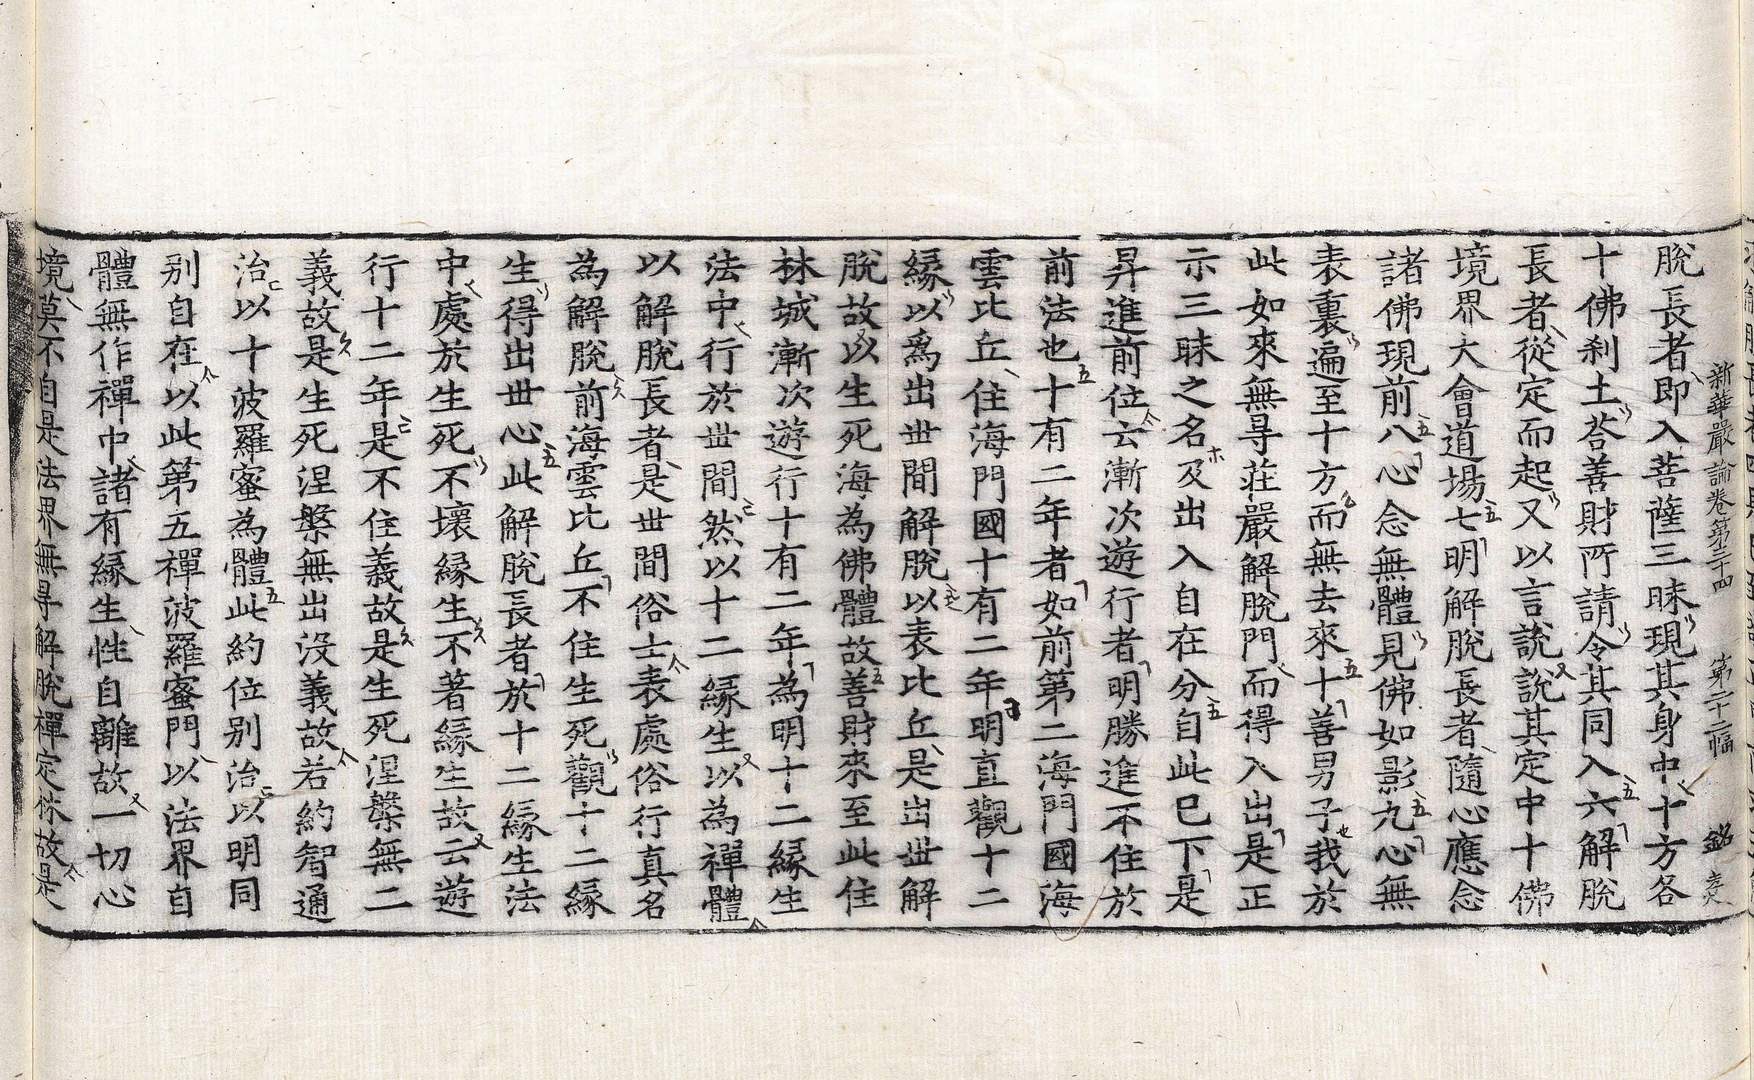 新華嚴論卷第三十四　第二十二幅　銘　孝大
脫長者即入菩薩三昧現其身中十方各
十佛刹土荅善財所請令其同入六解脫
長者從定而起又以言說說其定中十佛
境界大會道場七明解脫長者隨心應念
諸佛現前八心念無體見佛如影九心無
表裏遍至十方而無去來十善男子我於
此如來無㝵莊嚴解脫門而得入出是正
示三昧之名及出入自在分自此巳下是
昇進前位云漸次遊行者明勝進不住於
前法也十有二年者如前第二海門國海
雲比丘住海門國十有二年明直觀十二
緣以爲出世間解脫以表比丘是出世解
脫故以生死海為佛體故善財來至此住
林城漸次遊行十有二年為明十二緣生
法中行於世間然以十二緣生以為禪體
以解脫長者是世間俗士表處俗行真名
為解脫前海雲比丘不住生死觀十二緣
生得出世心此解脫長者於十二緣生法
中處於生死不壞緣生不著緣生故云遊
行十二年是不住義故是生死涅槃無二
義故是生死涅槃無出沒義故若約智通
治以十波羅蜜為體此約位別治以明同
別自在以此第五禪波羅蜜門以法界自
體無作禪中諸有緣生性自離故一切心
境莫不自是法界無㝵解脫禪定林故是